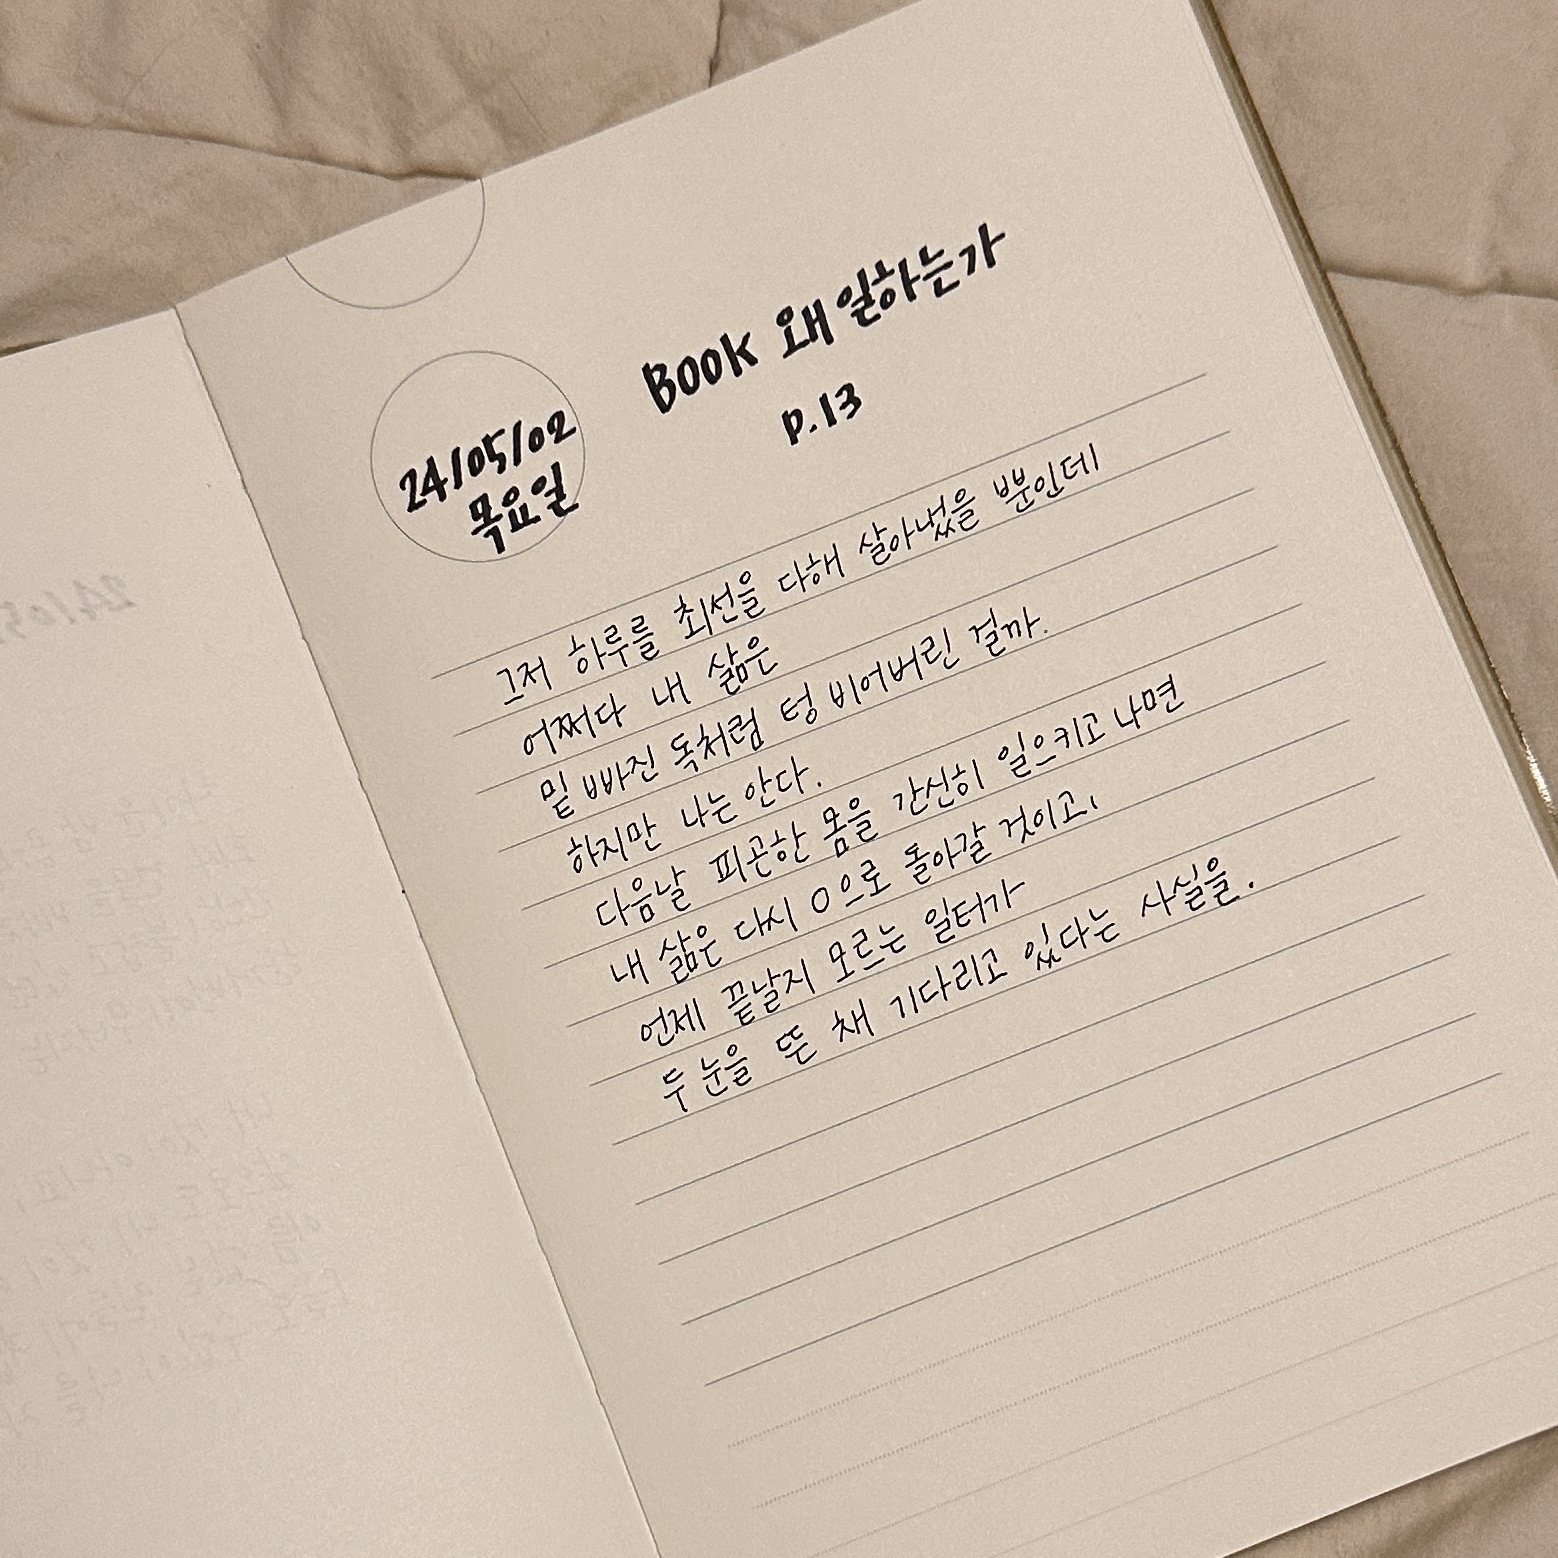 24/05/02
목요일
BOOK 왜 일하는가
P.13
그저 하루를 최선을 다해 살아냈을 뿐인데
어쩌다 내 삶은
밑 빠진 독처럼 텅 비어버린 걸까.
하지만 나는 안다.
다음날 피곤한 몸을 간신히 일으키고 나면
내 삶은 다시 0으로 돌아갈 것이고,
언제 끝날지 모르는 일터가
두 눈을 뜬 채 기다리고 있다는 사실을.